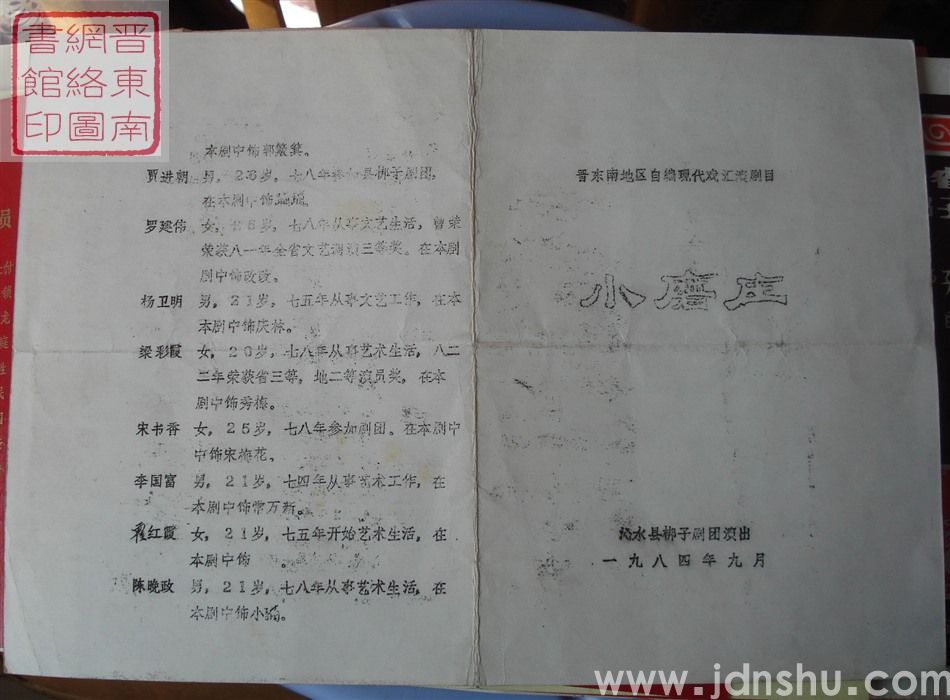 晋东南
网络图
书馆印
本剧中饰郭簸箕。
贾进朝 男，26岁，七八年参加县梆子剧团，
在本剧中饰
罗建伟 女，岁，七八年从事文艺生活，曾荣
荣获八一年全省文艺调演三等奖。在本剧
剧中饰改改。
杨卫明 男，21岁，七五年从事文艺工作，在本
本剧中饰庆林。
梁彩霞 女，20岁，七八年从事艺术生活，八二
二年荣获省三等，地二等演员奖，在本
剧中饰秀梅。
宋书香 女，25岁，七八年参加剧团。在本剧中
中饰宋梅花。
李国富 男，21岁，七四年从事艺术工作，在
本剧中饰常万新。
翟红霞 女，21岁，七五年开始艺术生活，在
本剧中饰 。
陈晚政 男，21岁，七八年从事艺术生活，在
本剧中饰小猫。
晋东南地区自编现代戏汇演剧目
小磨庄
沁水县梆子剧团演出
一九八四年九月
员
www.jdnshu.com